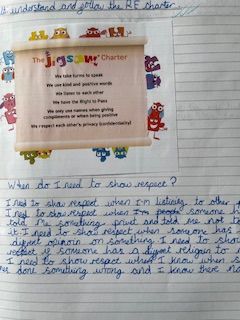 understand and follow the RE charter
The Jigsaw Charter
We take turns to speak
We use kind and positive words
We listen to each other
We have the Right to Pass
We only use names when giving
compliments or when being positive
We respect each other's privacy (confidentiality)
When do I need to show respect?
I need to show respect when I'm listening to other
I need to show respect when I'm people someone
told me something privet and told me not
it. I need to show respect when someone has
opinoin on something I need to
respect if someone has a religion to
I need to show respect when I know when
done something wrong and I know there